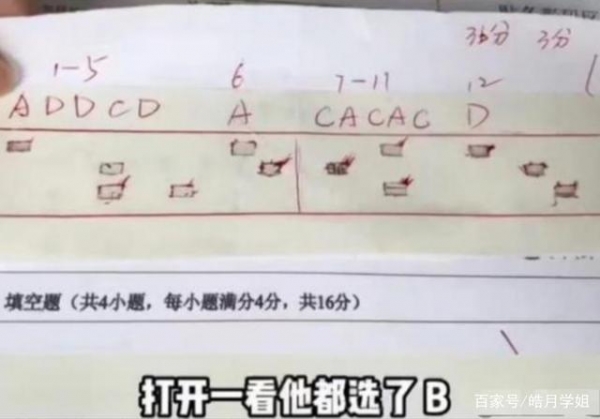 36分 3分
1-5 6 7-11 12
ADDCD A CACAC D
填空题（共4小题，每小题满分4分，共16分）
打开一看他都选了B
百家号/皓月学姐